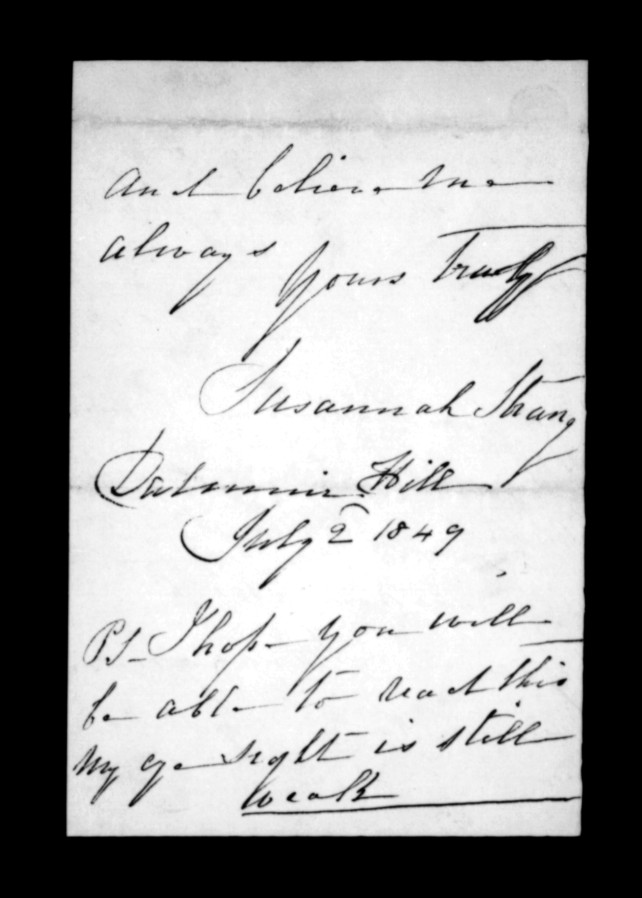 And believe me
always
yours truly
Susannah Strang
Dalmuir Hill
July 2 1849
PS I hope you will
be able to read this
my eye sight is still
weak